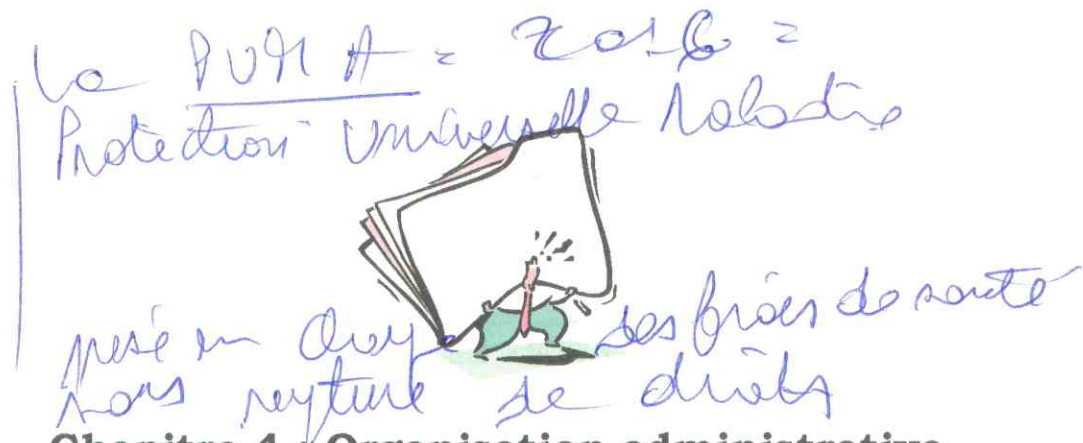 La PUMA = 2016 =
Protection Universelle Maladie
prise en charge des frais de santé
sans rupture de droits
Chapitre 1 : Organisation administrative